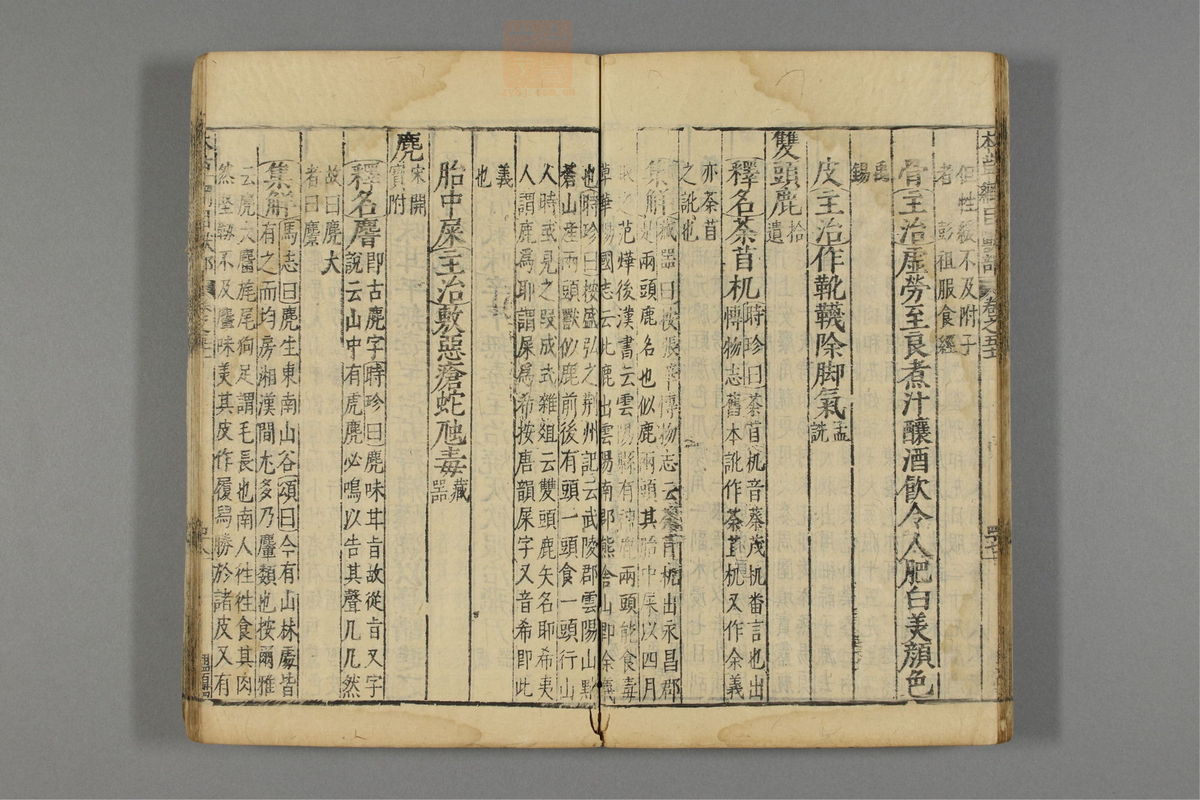 但性緩不及附子
者彭祖服食經
骨主治虛勞至良煮汁釀酒飲令人肥白美顏色
禹
錫
皮主治作靴韈除脚氣孟
詵
雙頭鹿拾
遺
釋名茶苜机時珍曰茶苜机音蔡茂机番言也出
愽物志舊本訛作茶苴机又作余義
亦茶苜
之訛也
集解藏器曰按張華愽物志云茶苜机出永昌郡
是兩頭鹿名也似鹿兩頭其胎中屎以四月
取之范燁後漢書云雲陽縣有神鹿兩頭能食毒
草華陽國志云此鹿出雲陽南郡熊舍山即余義
也時珍曰按盛弘之荆州記云武陵郡雲陽山點
蒼山産兩頭獸似鹿前後有頭一頭食一頭行山
人時或見之段成式雜俎云雙頭鹿矢名耶希夷
人謂鹿爲耶謂屎爲希按唐韻屎字又音希即此
義
也
胎中屎主治敷惡瘡蛇虺毒藏
器
麂宋開
寳附
釋名麔即古麂字時珍曰麂味甘旨故從旨又字
說云山中有虎麂必鳴以告其聲几几然
故曰麂大
者曰麖
集解馬志曰麂生東南山谷頌曰今有山林處皆
有之而均房湘漢間尤多乃麞類也按爾雅
云麂大麕旄尾狗足謂毛長也南人徃徃食其肉
然堅韌不及麞味美其皮作履舄勝於諸皮又有